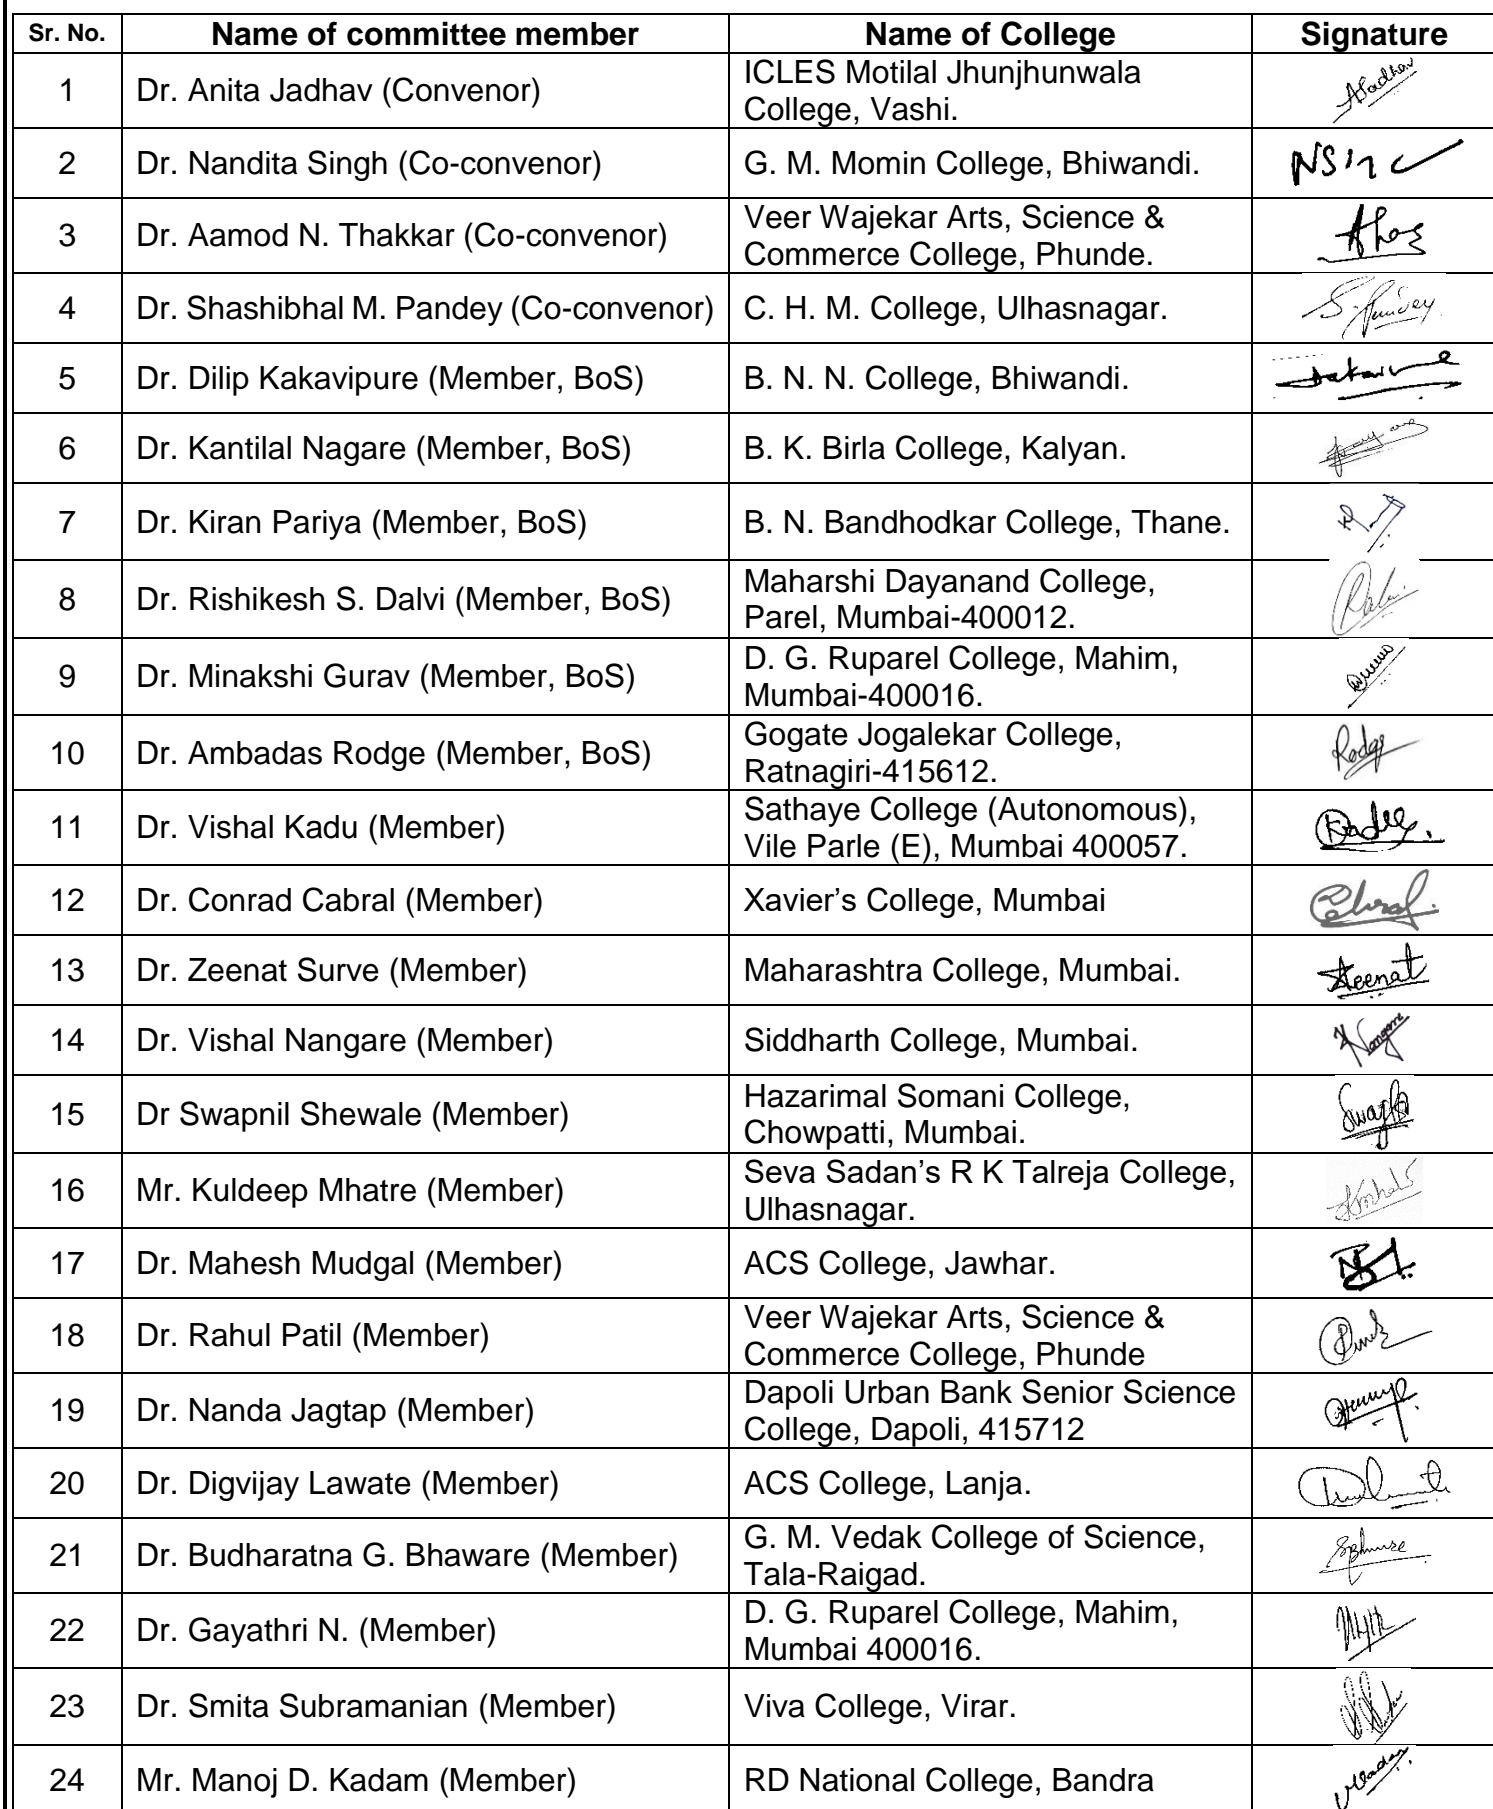 Sr. No. Name of committee member Name of College Signature
1 Dr. Anita Jadhav (Convenor) ICLES Motilal Jhunjhunwala
College, Vashi.
2 Dr. Nandita Singh (Co-convenor) G. M. Momin College, Bhiwandi.
3 Dr. Aamod N. Thakkar (Co-convenor) Veer Wajekar Arts, Science &
Commerce College, Phunde.
4 Dr. Shashibhal M. Pandey (Co-convenor) C. H. M. College, Ulhasnagar.
5 Dr. Dilip Kakavipure (Member, BoS) B. N. N. College, Bhiwandi.
6 Dr. Kantilal Nagare (Member, BoS) B. K. Birla College, Kalyan.
7 Dr. Kiran Pariya (Member, BoS) B. N. Bandhodkar College, Thane.
8 Dr. Rishikesh S. Dalvi (Member, BoS) Maharshi Dayanand College,
Parel, Mumbai-400012.
9 Dr. Minakshi Gurav (Member, BoS) D. G. Ruparel College, Mahim,
Mumbai-400016.
10 Dr. Ambadas Rodge (Member, BoS) Gogate Jogalekar College,
Ratnagiri-415612.
11 Dr. Vishal Kadu (Member) Sathaye College (Autonomous),
Vile Parle (E), Mumbai 400057.
12 Dr. Conrad Cabral (Member) Xavier’s College, Mumbai
13 Dr. Zeenat Surve (Member) Maharashtra College, Mumbai. Zeenat
14 Dr. Vishal Nangare (Member) Siddharth College, Mumbai.
15 Dr Swapnil Shewale (Member) Hazarimal Somani College,
Chowpatti, Mumbai.
16 Mr. Kuldeep Mhatre (Member) Seva Sadan’s R K Talreja College,
Ulhasnagar.
17 Dr. Mahesh Mudgal (Member) ACS College, Jawhar.
18 Dr. Rahul Patil (Member) Veer Wajekar Arts, Science &
Commerce College, Phunde
19 Dr. Nanda Jagtap (Member) Dapoli Urban Bank Senior Science
College, Dapoli, 415712
20 Dr. Digvijay Lawate (Member) ACS College, Lanja.
21 Dr. Budharatna G. Bhaware (Member) G. M. Vedak College of Science,
Tala-Raigad.
22 Dr. Gayathri N. (Member) D. G. Ruparel College, Mahim,
Mumbai 400016.
23 Dr. Smita Subramanian (Member) Viva College, Virar.
24 Mr. Manoj D. Kadam (Member) RD National College, Bandra